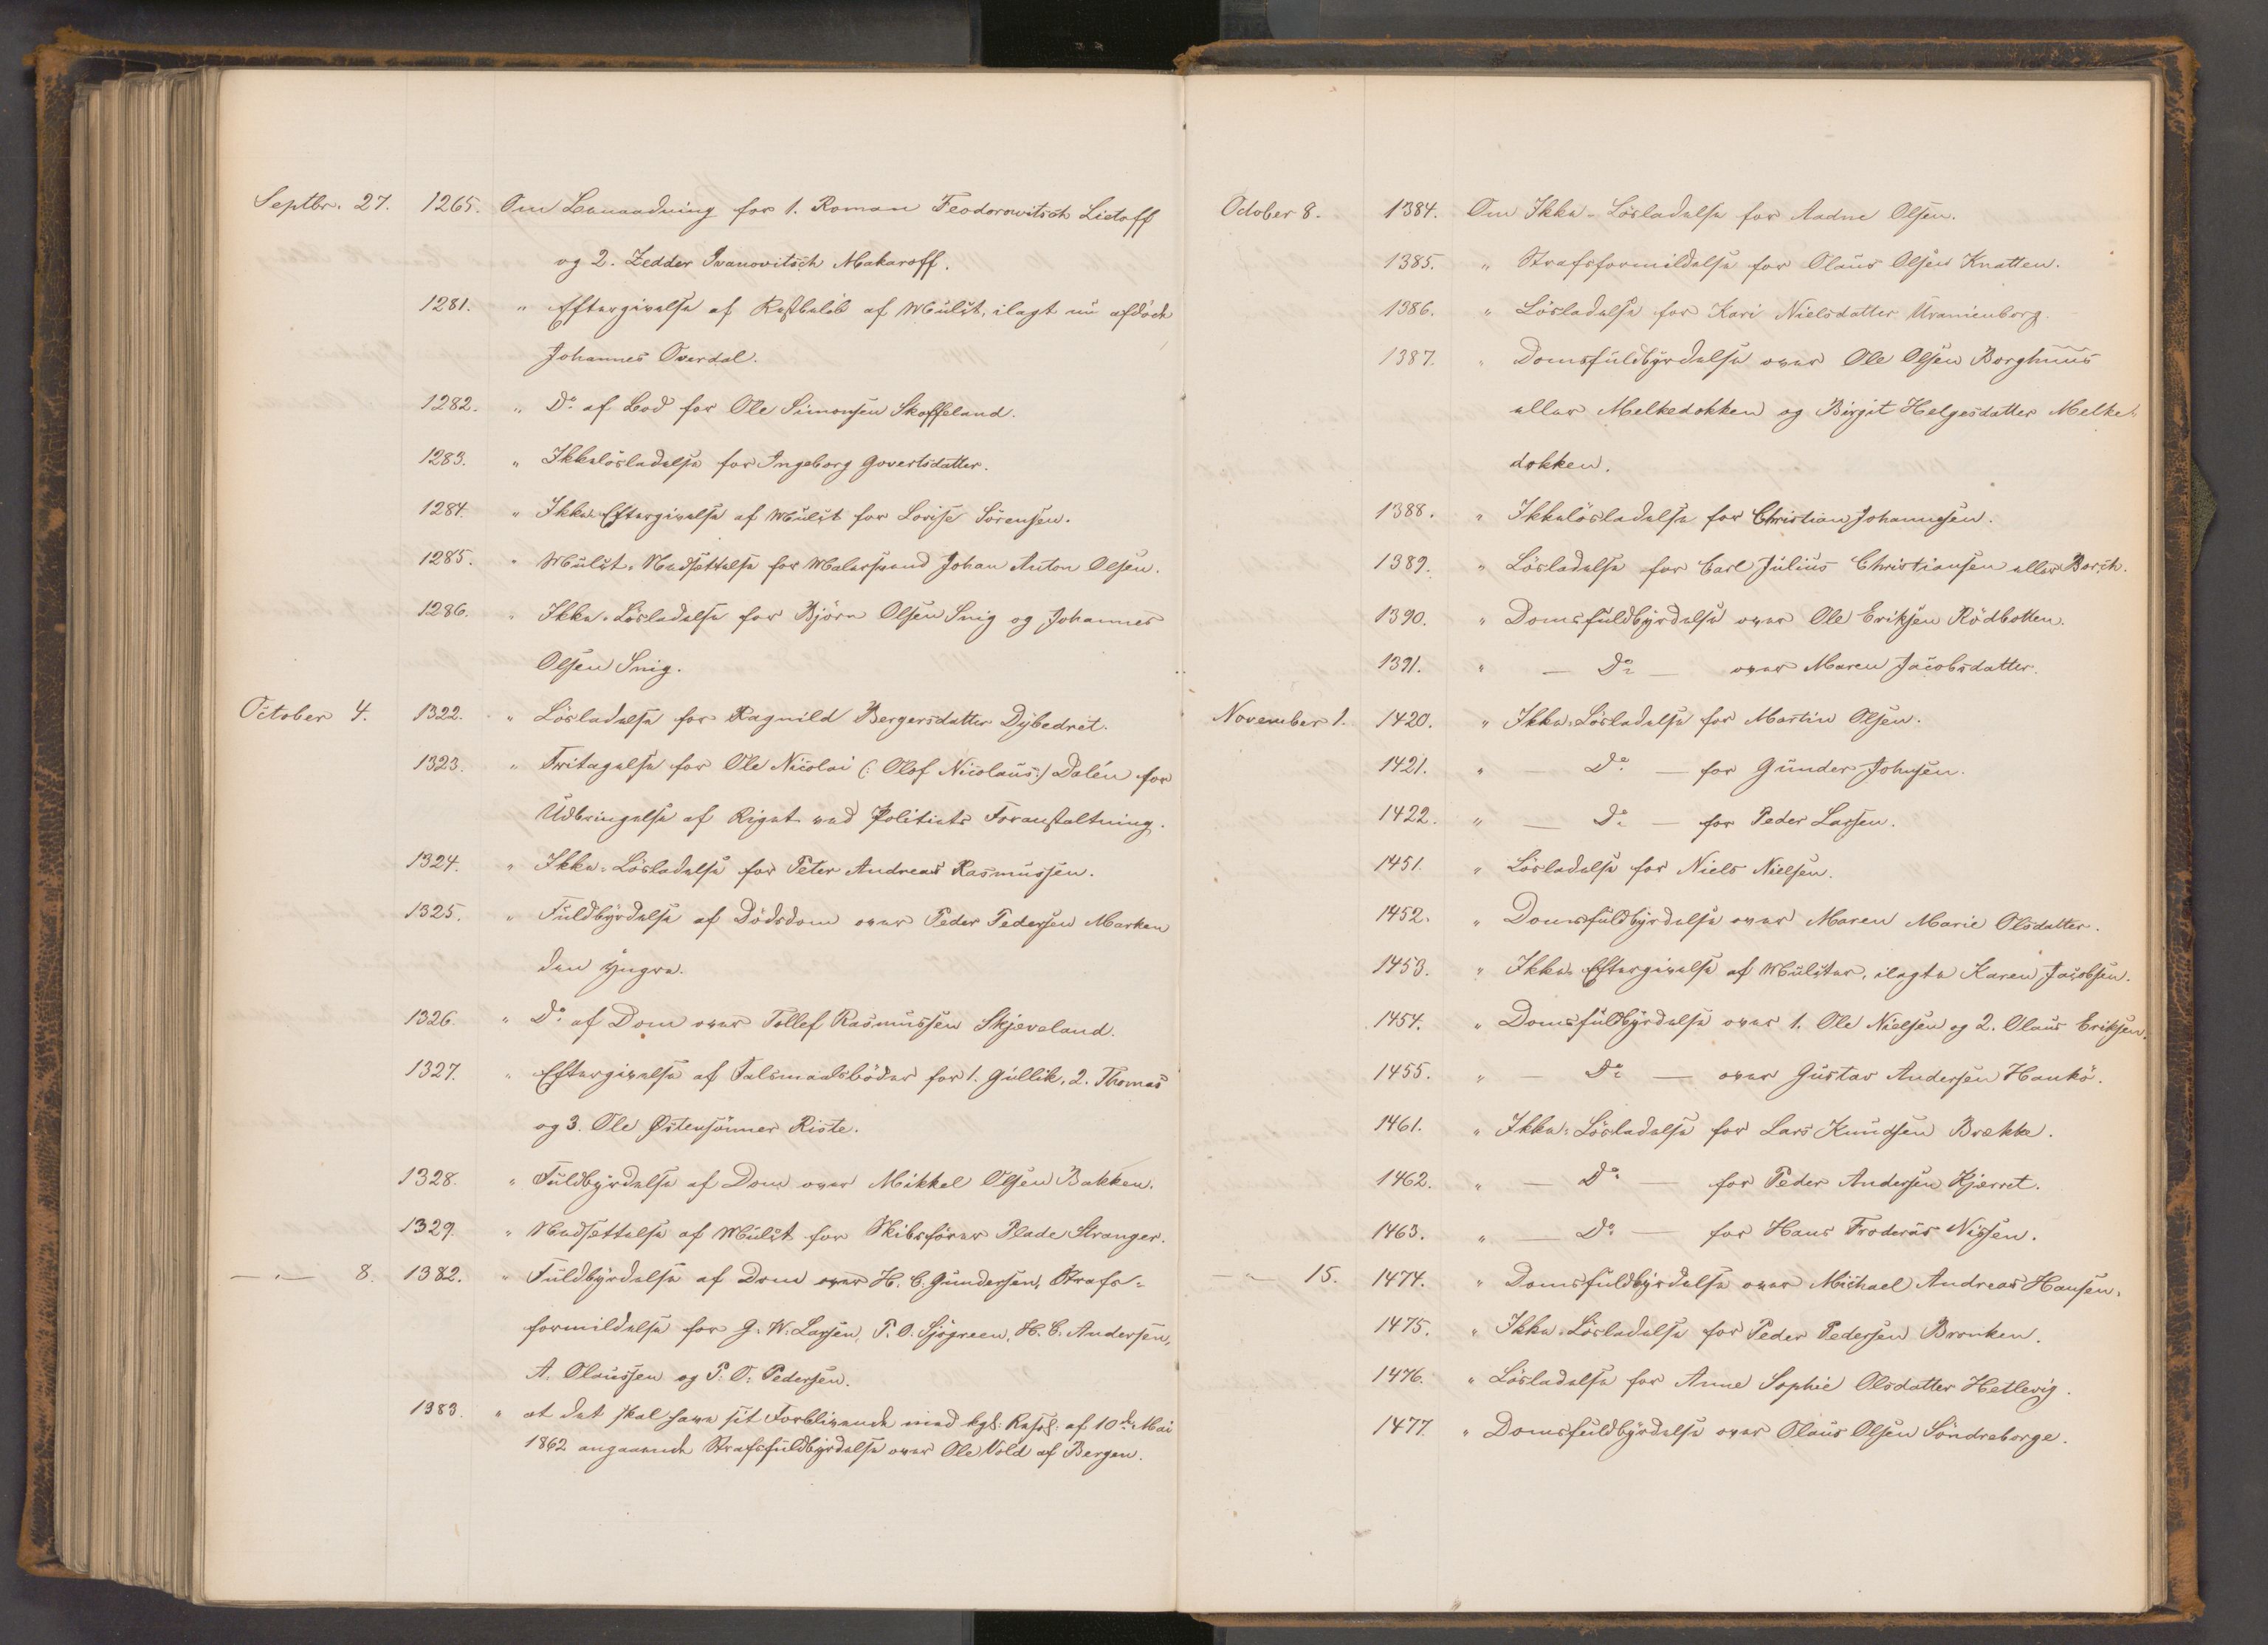 Septbr. 27. 1265. Om Benaadning for 1. Roman Feodorowitsch Lietoff
og 2. Zedder Ivanovitsch Makaroff.
1281. " Eftergivelse af Restbeløb af Mulct, ilagt nu afdøde
Johannes Overdal.
1282. " Do. af Bod for Ole Simonsen Skoffeland.
1283. " Ikkeløsladelse for Ingeborg Govertsdatter.
1284. " Ikke-Eftergivelse af Mulct for Lovise Sörensen.
1285. " Mulct-Nedsettelse for Malersvend Johan Anton Olsen.
1286. " Ikke-Lösladelse for Björn Olsen Snig og Johannes
Olsen Snig.
October 4. 1322. " Lösladelse for Ragnild Bergersdatter Dybedret.
1323. " Fritagelse for Ole Nicolai (: Olof Nicolaus:) Dalén for
Udbringelse af Riget ved Politiets Foranstaltning.
1324. " Ikke-Lösladelse for Peter Andreas Rasmussen.
1325. " Fuldbyrdelse af Dödsdom over Peder Pedersen Marken
den Yngre.
1326. " Do. af Dom over Tollef Rasmussen Skjeveland.
1327. " Eftergivelse af Falsmaalsböder for 1. Gullik, 2. Thomas
og 3. Ole Østensönner Riste.
1328. " Fuldbyrdelse af Dom over Mikkel Olsen Bakken.
1329. " Nedsettelse af Mulct for Skibsförer Plade Stranger.
— " — 8. 1382. " Fuldbyrdelse af Dom over H. C. Gundersen, Strafs-
formildelse for G. W. Larsen, P. O. Sjögreen, H. C. Andersen,
A. Olaussen og P. O. Pedersen.
1383. " at det skal have sit Forblivende med kgl. Resol. af 10de Mai
1862 angaaende Straffuldbyrdelse over Ole Vold af Bergen.
October 8. 1384. Om Ikke-Lösladelse for Aadne Olsen.
1385. " Strafsformildelse for Olaus Olsen Knatten.
1386. " Lösladelse for Kari Nielsdatter Uranienborg.
1387. " Domsfuldbyrdelse over Ole Olsen Borghuus
eller Melkedokken og Birgit Helgesdatter Melke-
dokken.
1388. " Ikkelösladelse for Christian Johannesen.
1389. " Lösladelse for Carl Julius Christiansen eller Borsch.
1390. " Domsfuldbyrdelse over Ole Eriksen Rödbotten.
1391. " — Do. — over Maren Jacobsdatter.
November 1. 1420. " Ikke-Lösladelse for Martin Olsen.
1421. " — Do. — for Gunder Johnsen.
1422. " — Do. — for Peder Larsen.
1451. " Lösladelse for Niels Nielsen.
1452. " Domsfuldbyrdelse over Maren Marie Olsdatter.
1453. " Ikke-Eftergivelse af Mulcter, ilagte Karen Jacobsen.
1454. " Domsfuldbyrdelse over 1. Ole Nielsen og 2. Olaus Eriksen.
1455. " — Do. — over Gustav Andersen Hankö.
1461. " Ikke-Lösladelse for Lars Knudsen Brække.
1462. " — Do. — for Peder Andersen Kjærret.
1463. " — Do. — for Hans Froderus Nissen.
— " — 15. 1474. " Domsfuldbyrdelse over Michael Andreas Hansen.
1475. " Ikke-Lösladelse for Peder Pedersen Bronken.
1476. " Lösladelse for Anne Sophie Olsdatter Hetlevig.
1477. " Domsfuldbyrdelse over Olaus Olsen Söndreborge.